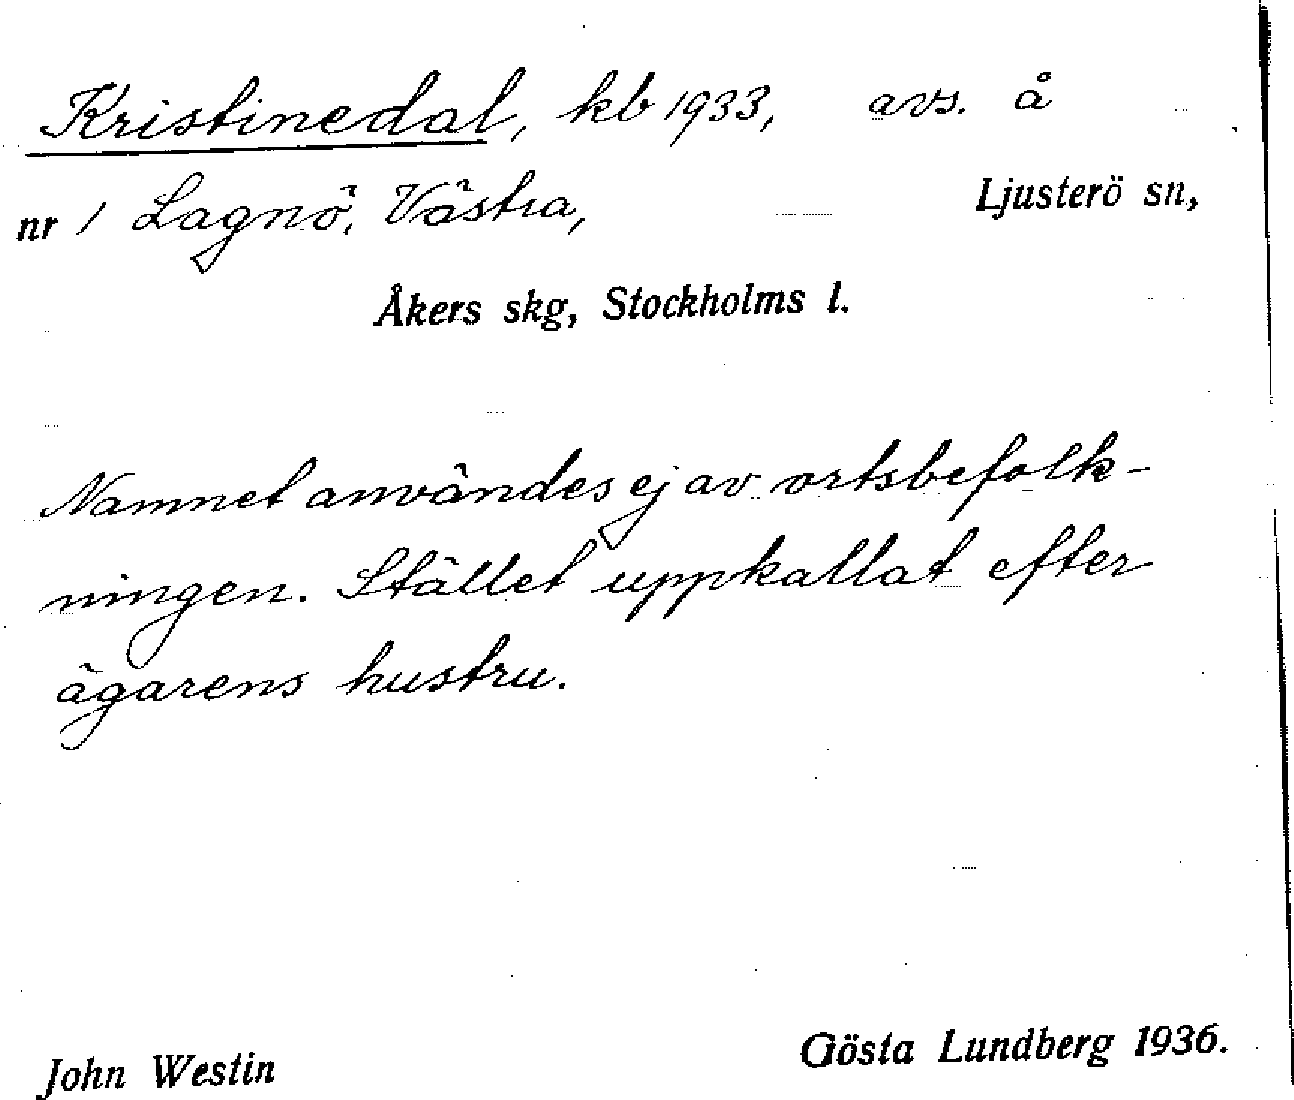 Kristinedal, kb 1933, avs. å
nr 1 Lagnö, Västra, Ljusterö sn,
Åkers skg, Stockholms l.
Namnet användes ej av ortsbefolk-
ningen. Stället uppkallat efter
ägarens hustru.
John Westin Gösta Lundberg 1936.